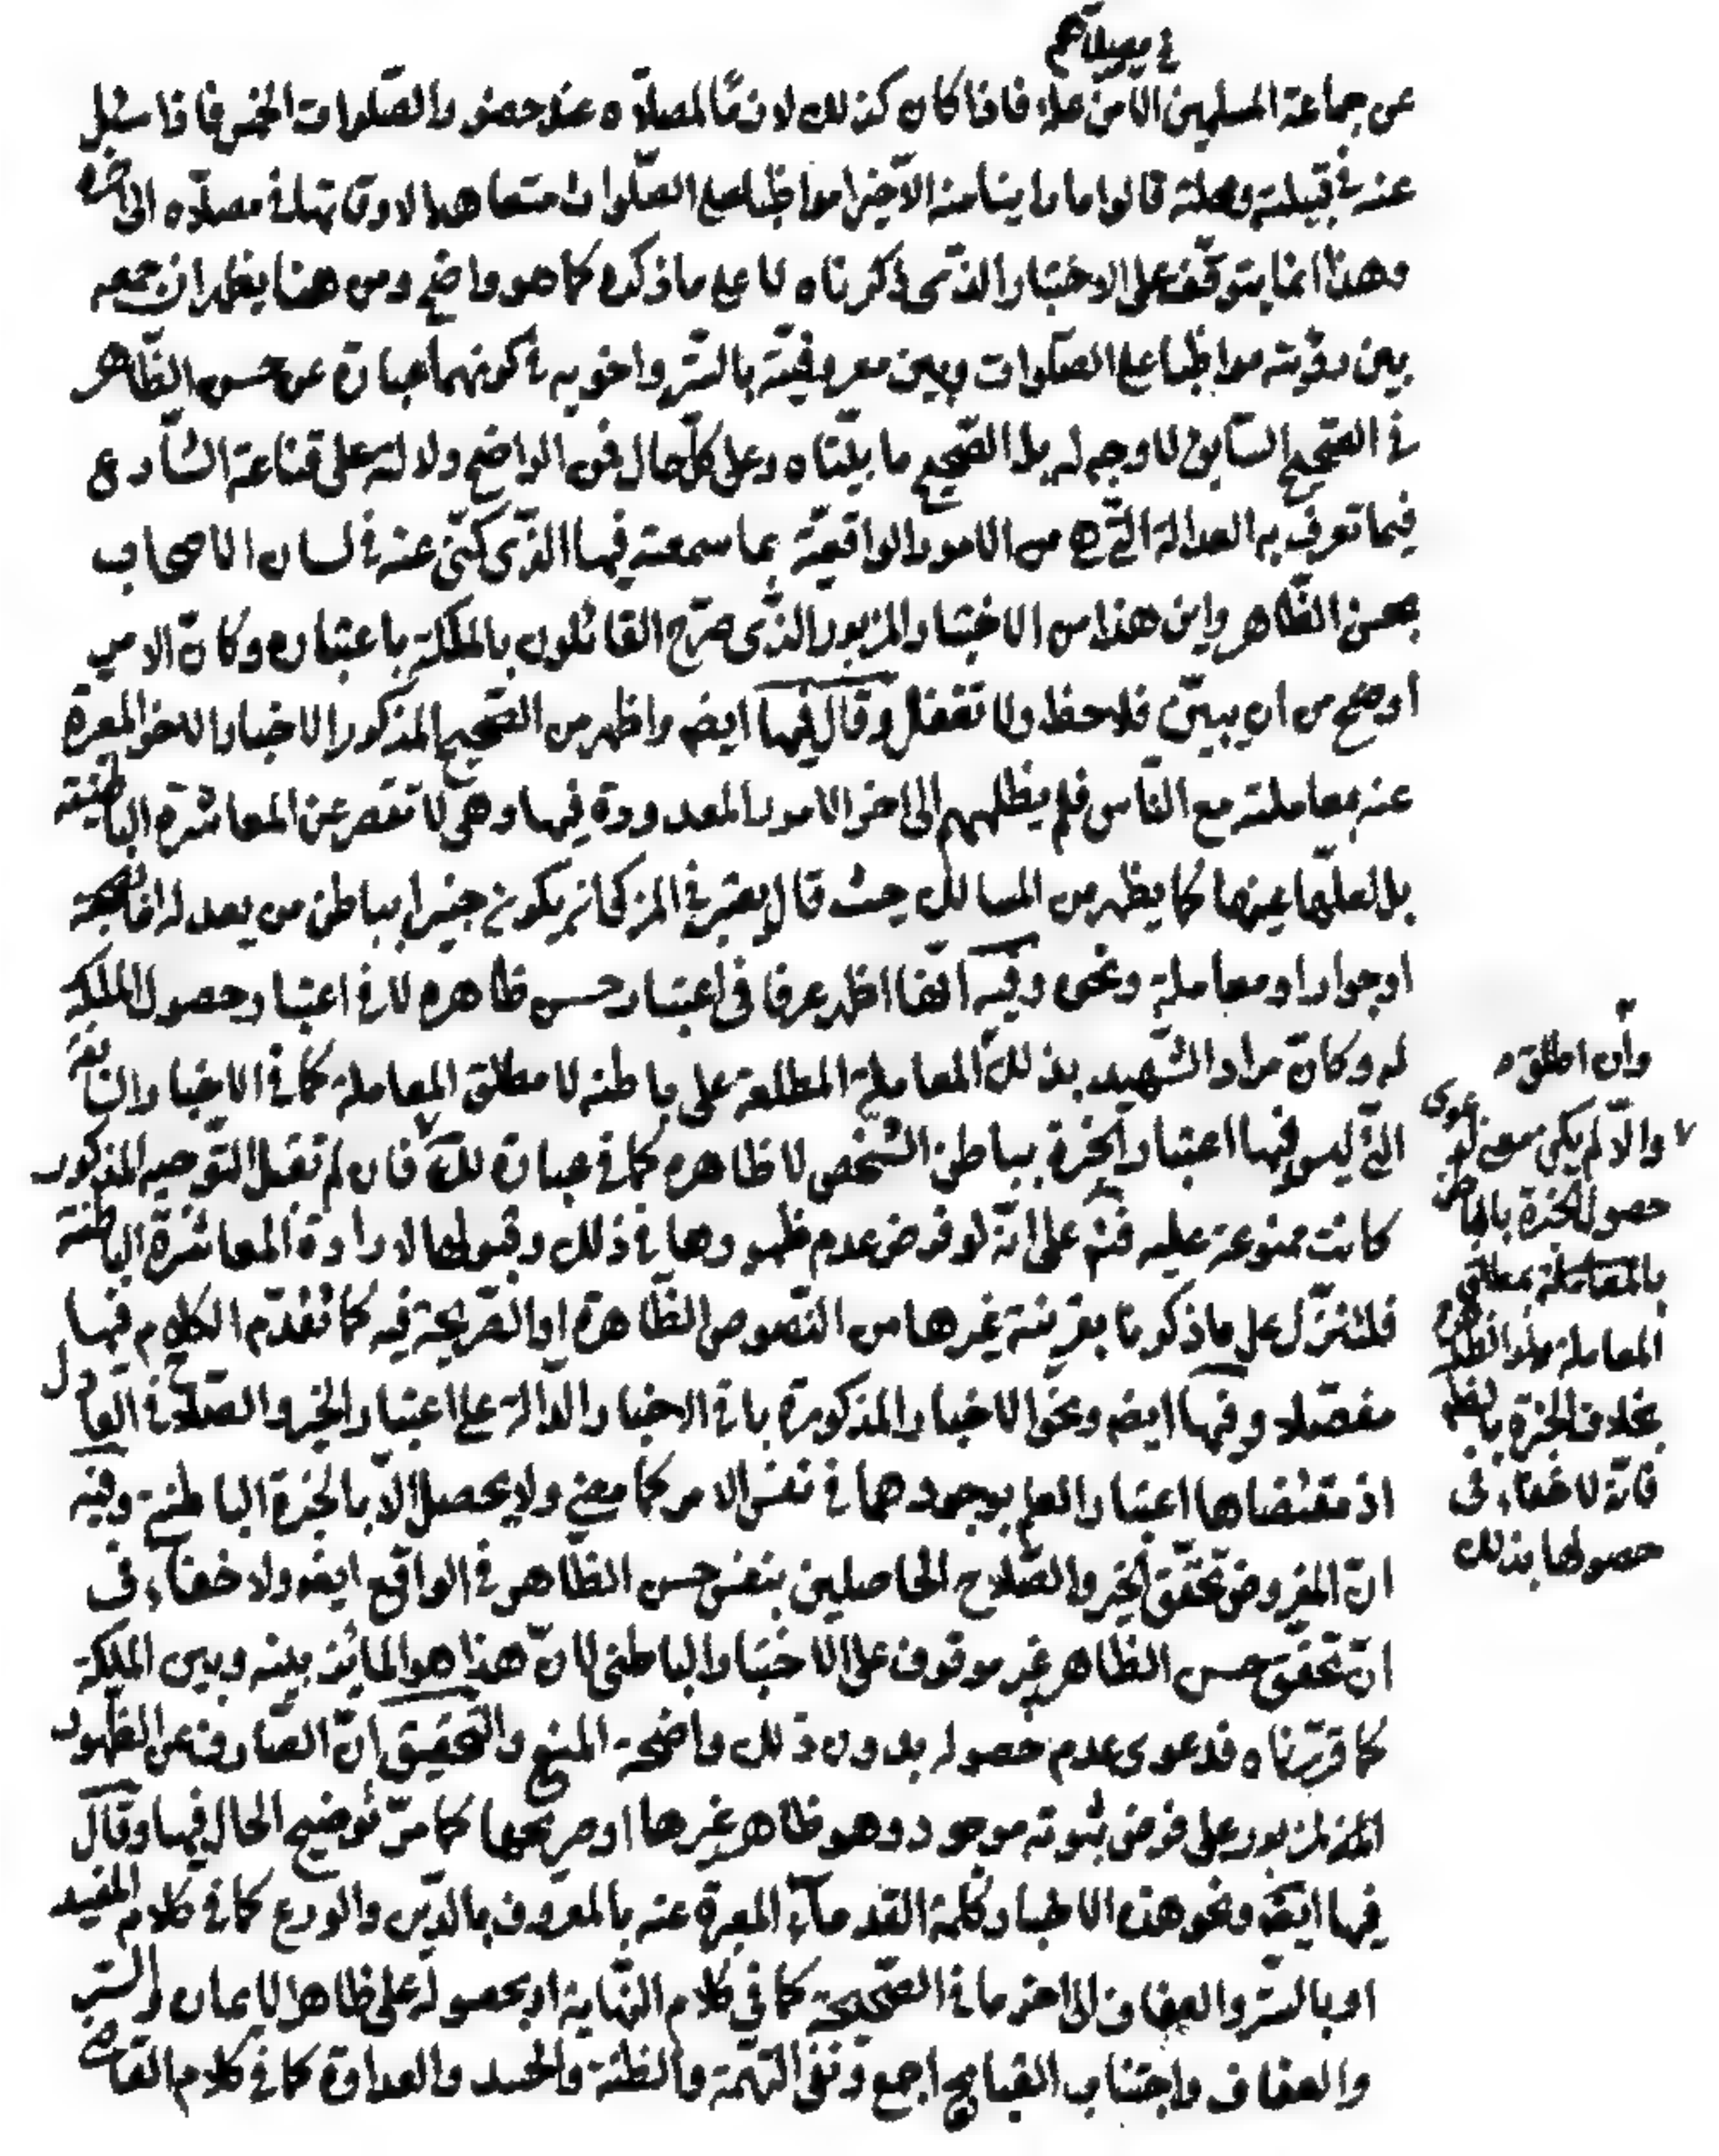 في مصلاهم
عن جماعة المسلمين الا من علة فاذا كان كذلك لازما لمصلاه عند حضور الصلوات الخمس فاذا سئل
عنه في قبيلته ومحلته قالوا ما راينا منه الا خيرا مواظبا على الصلوات متعاهدا لاوقاتها في مصلاه الى اخره
وهذا انما يتوقف على الاختبار الذى ذكرناه لا على ما ذكره كما هو واضح ومن هنا يظهر ان جمعه
بين رؤيته مواظبا على الصلوات وبين معروفيته بالستر واخويه في كونهما عبارة عن حسن الظاهر
في الصحيح السابق لا وجه له بل الصحيح ما بيناه وعلى كل حال فمن الواضح دلالته على قناعة الشارع
فيما تعرف به العدالة التى هى من الامور الواقعية بما سمعته فيها الذى كنى عنه في لسان الاصحاب
بحسن الظاهر واين هذا من الاختبار المزبور الذى صرح القائلون بالملكة باعتباره وكان الامر
اوضح من ان يبين فلاحظ ولا تغفل وقال فيها ايضا واظهر من الصحيح المذكور الاخبار الاخر المعبرة
عنه بمعاملته مع الناس فلم يظلمهم الى اخر الامور المعدودة فيها وهى لا تقصر عن المعاشرة الباطنية
بل لعلها عينها كما يظهر من المسالك حيث قال يعتبر في المزكى انه يكون خبيرا بباطن من يعدله اما بصحبة
او جوار او معاملة ونحوه وفيه انها اظهر عرفا في اعتبار حسن ظاهره لا في اعتبار حصول الملكة
له وكان مراد الشهيد بذلك المعاملة المطلعة على باطنه لا مطلق المعاملة كما في الاخبار السابقة
التى ليس فيها اعتبار الخبرة بباطن الشخص لا ظاهره كما في عبارة لك فان لم تقبل التوجيه المذكور
كانت ممنوعة عليه فتم على انه لو فرض عدم ظهورها في ذلك وقبولها لارادة المعاشرة الباطنة
فلتنزل على ما ذكرنا بقرينة غيرها من النصوص الظاهرة او الصريحة فيه كما تقدم الكلام فيها
مفصلا وفيها ايضا ونحو الاخبار المذكورة باقى الاخبار الدالة على اعتبار الخير والصلاح في العادل
اذ مقتضاها اعتبار العلم بوجودهما في نفس الامر كما مضى ولا يحصل الا بالخبرة الباطنة وفيه
ان المفروض تحقق الخير والصلاح الحاصلين بنفس حسن الظاهر في الواقع ايضا ولا خفاء في
ان تحقق حسن الظاهر غير موقوف على الاختبار الباطنى لان هذا هو المائز بينه وبين الملكة
كما قررناه فدعوى عدم حصوله بدون ذلك واضحة المنع والتحقيق ان الصارف عن الظهور
المزبور على فرض ثبوته موجود وهو ظاهر غيرها او صريحها كما مر توضيح الحال فيها وقال
فيها ايضا ونحو هذه الاخبار كلمة القدماء المعبرة عنه بالمعروف بالدين والورع كما في كلام المفيد
او بالستر والعفاف الى اخر ما في الصحيحة كما في كلام النهاية او بحصوله على ظاهر الايمان والستر
والعفاف واجتناب القبايح اجمع ونفى التهمة والظنة والحسد والعداوة كما في كلام القاضى
وان اطلقه
والا لم يكن معنى لدعوى
حصول الخبرة بالباطن
بالمعاملة بمطلق
المعاملة
بخلاف الخبرة
فانه لا خفاء فى
حصولها بذلك